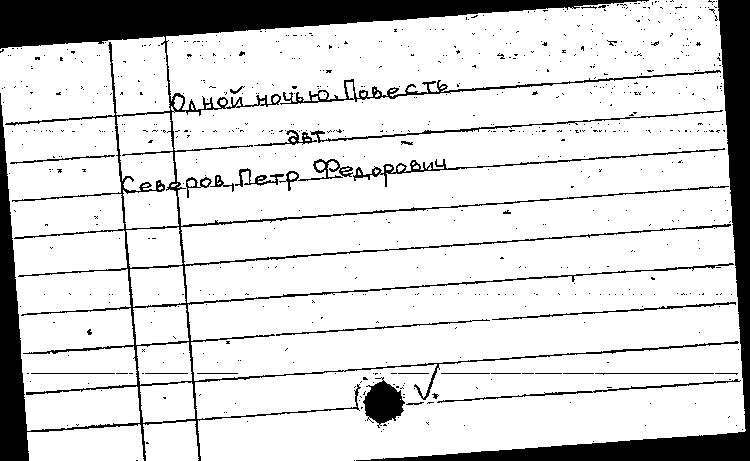 Одной ночью. Повесть.
авт.
Северов, Петр Федорович